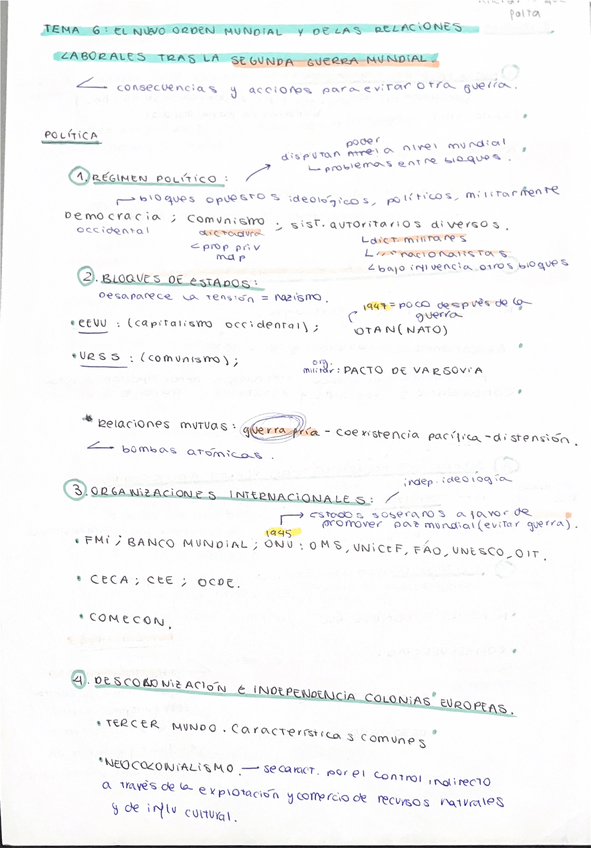 falta
TEMA 6: EL NUEVO ORDEN MUNDIAL Y DE LAS RELACIONES
LABORALES TRAS LA SEGUNDA GUERRA MUNDIAL.
consecuencias y acciones para evitar otra guerra.
POLÍTICA
poder
disputan a nivel mundial
problemas entre bloques.
1. RÉGIMEN POLÍTICO:
bloques opuestos ideológicos, políticos, militarmente
Democracia; comunismo; sist. autoritarios diversos.
occidental dictadura dict militares
prop priv " nacionalistas
mdp bajo influencia otros bloques
2. BLOQUES DE ESTADOS:
Desaparece la tensión = nazismo.
1947 = poco después de la
guerra
• EEUU: (capitalismo occidental); OTAN (NATO)
• URSS: (comunismo); org. militar: PACTO DE VARSOVIA
* Relaciones mutuas: guerra fría - coexistencia pacífica - distensión.
bombas atómicas.
3. ORGANIZACIONES INTERNACIONALES:
indep. ideología
estados soberanos a favor de
promover paz mundial (evitar guerra).
1945
• FMI; BANCO MUNDIAL; ONU: OMS, UNICEF, FAO, UNESCO, OIT.
• CECA; CEE; OCDE.
• COMECON.
4. DESCOLONIZACIÓN E INDEPENDENCIA COLONIAS EUROPEAS.
• TERCER MUNDO. Características comunes
• NEOCOLONIALISMO. — se caract. por el control indirecto
a través de la explotación y comercio de recursos naturales
y de influ cultural.